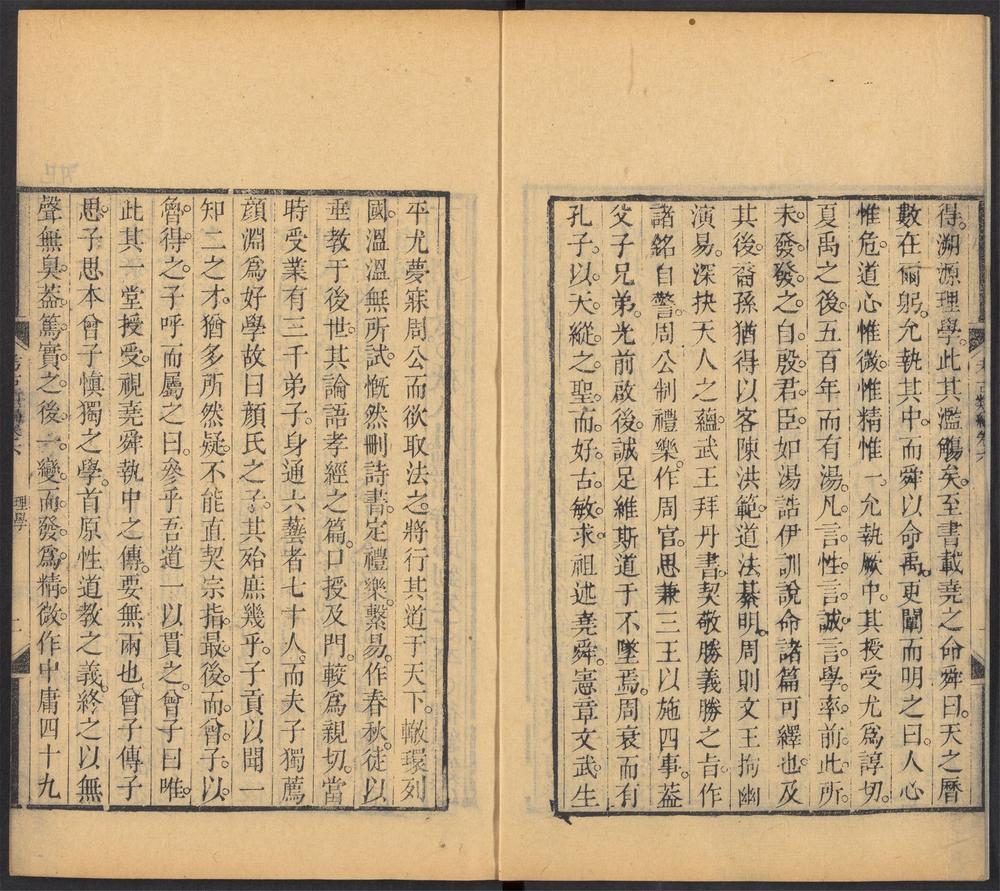 得。溯源理學。此其濫觴矣。至書載堯之命舜曰。天之曆
數在爾躬。允執其中。而舜以命禹。更闡而明之曰。人心
惟危。道心惟微。惟精惟一。允執厥中。其授受尤爲諄切。
夏禹之後。五百年而有湯。凡言性。言誠。言學。率前此所
未發。發之自殷君臣。如湯誥伊訓說命諸篇可繹也。及
其後。裔孫猶得以客陳洪範。道法綦明。周則文王拘幽
演易。深抉天人之蘊。武王拜丹書。契敬勝義勝之旨。作
諸銘自警。周公制禮樂。作周官。思兼三王以施四事。葢
父子兄弟。光前啟後。誠足維斯道于不墜焉。周衰而有
孔子。以天縱之聖。而好古敏求。祖述堯舜。憲章文武。生
平尤夢寐周公而欲取法之。將行其道于天下。轍環列
國。溫溫無所試。慨然刪詩書。定禮樂。繫易。作春秋。徒以
垂教于後世。其論語孝經之篇。口授及門。較爲親切。當
時受業有三千弟子。身通六藝者七十人。而夫子獨薦
顏淵爲好學。故曰顏氏之子。其殆庶幾乎。子貢以聞一
知二之才。猶多所然疑。不能直契宗指。最後而曾子。以
魯得之。子呼而屬之曰。參乎吾道一以貫之。曾子曰唯。
此其一堂授受。視堯舜執中之傳。要無兩也。曾子傳子
思。子思本曾子慎獨之學。首原性道教之義。終之以無
聲無臭。葢篤實之後。一變而發爲精微。作中庸四十九
理學